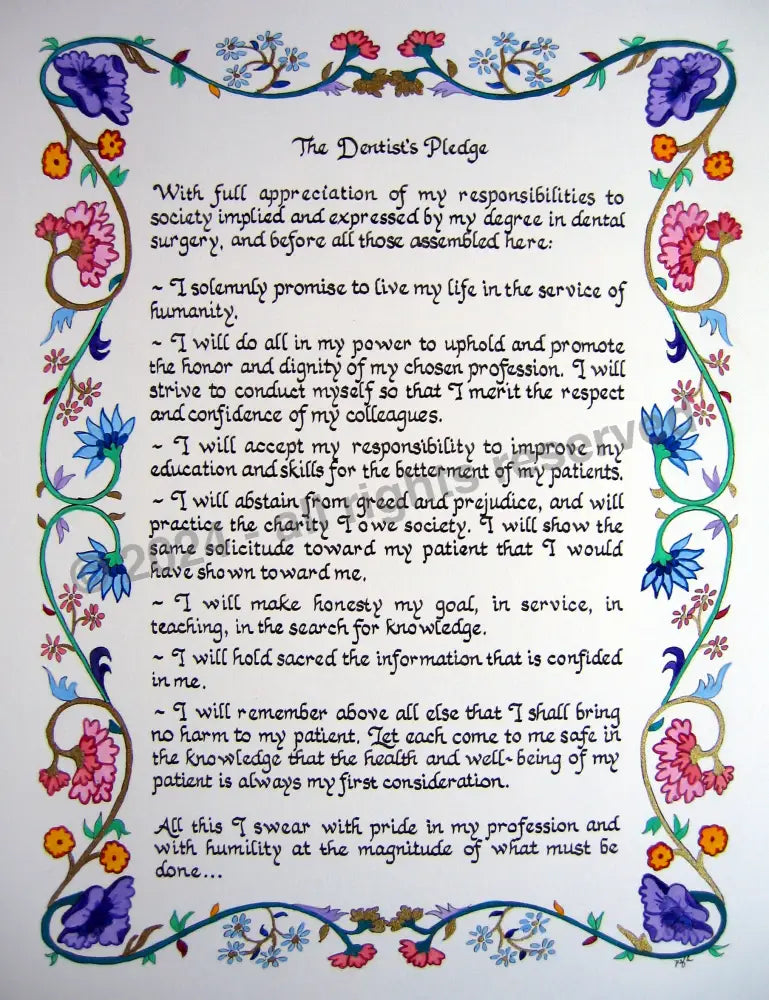 The Dentist's Pledge
With full appreciation of my responsibilities to
society implied and expressed by my degree in dental
surgery, and before all those assembled here:
~ I solemnly promise to live my life in the service of
humanity.
~ I will do all in my power to uphold and promote
the honor and dignity of my chosen profession. I will
strive to conduct myself so that I merit the respect
and confidence of my colleagues.
~ I will accept my responsibility to improve my
education and skills for the betterment of my patients.
~ I will abstain from greed and prejudice, and will
practice the charity I owe society. I will show the
same solicitude toward my patient that I would
have shown toward me.
~ I will make honesty my goal, in service, in
teaching, in the search for knowledge.
~ I will hold sacred the information that is confided
in me.
~ I will remember above all else that I shall bring
no harm to my patient. Let each come to me safe in
the knowledge that the health and well-being of my
patient is always my first consideration.
All this I swear with pride in my profession and
with humility at the magnitude of what must be
done...
© 2024 - all rights reserved